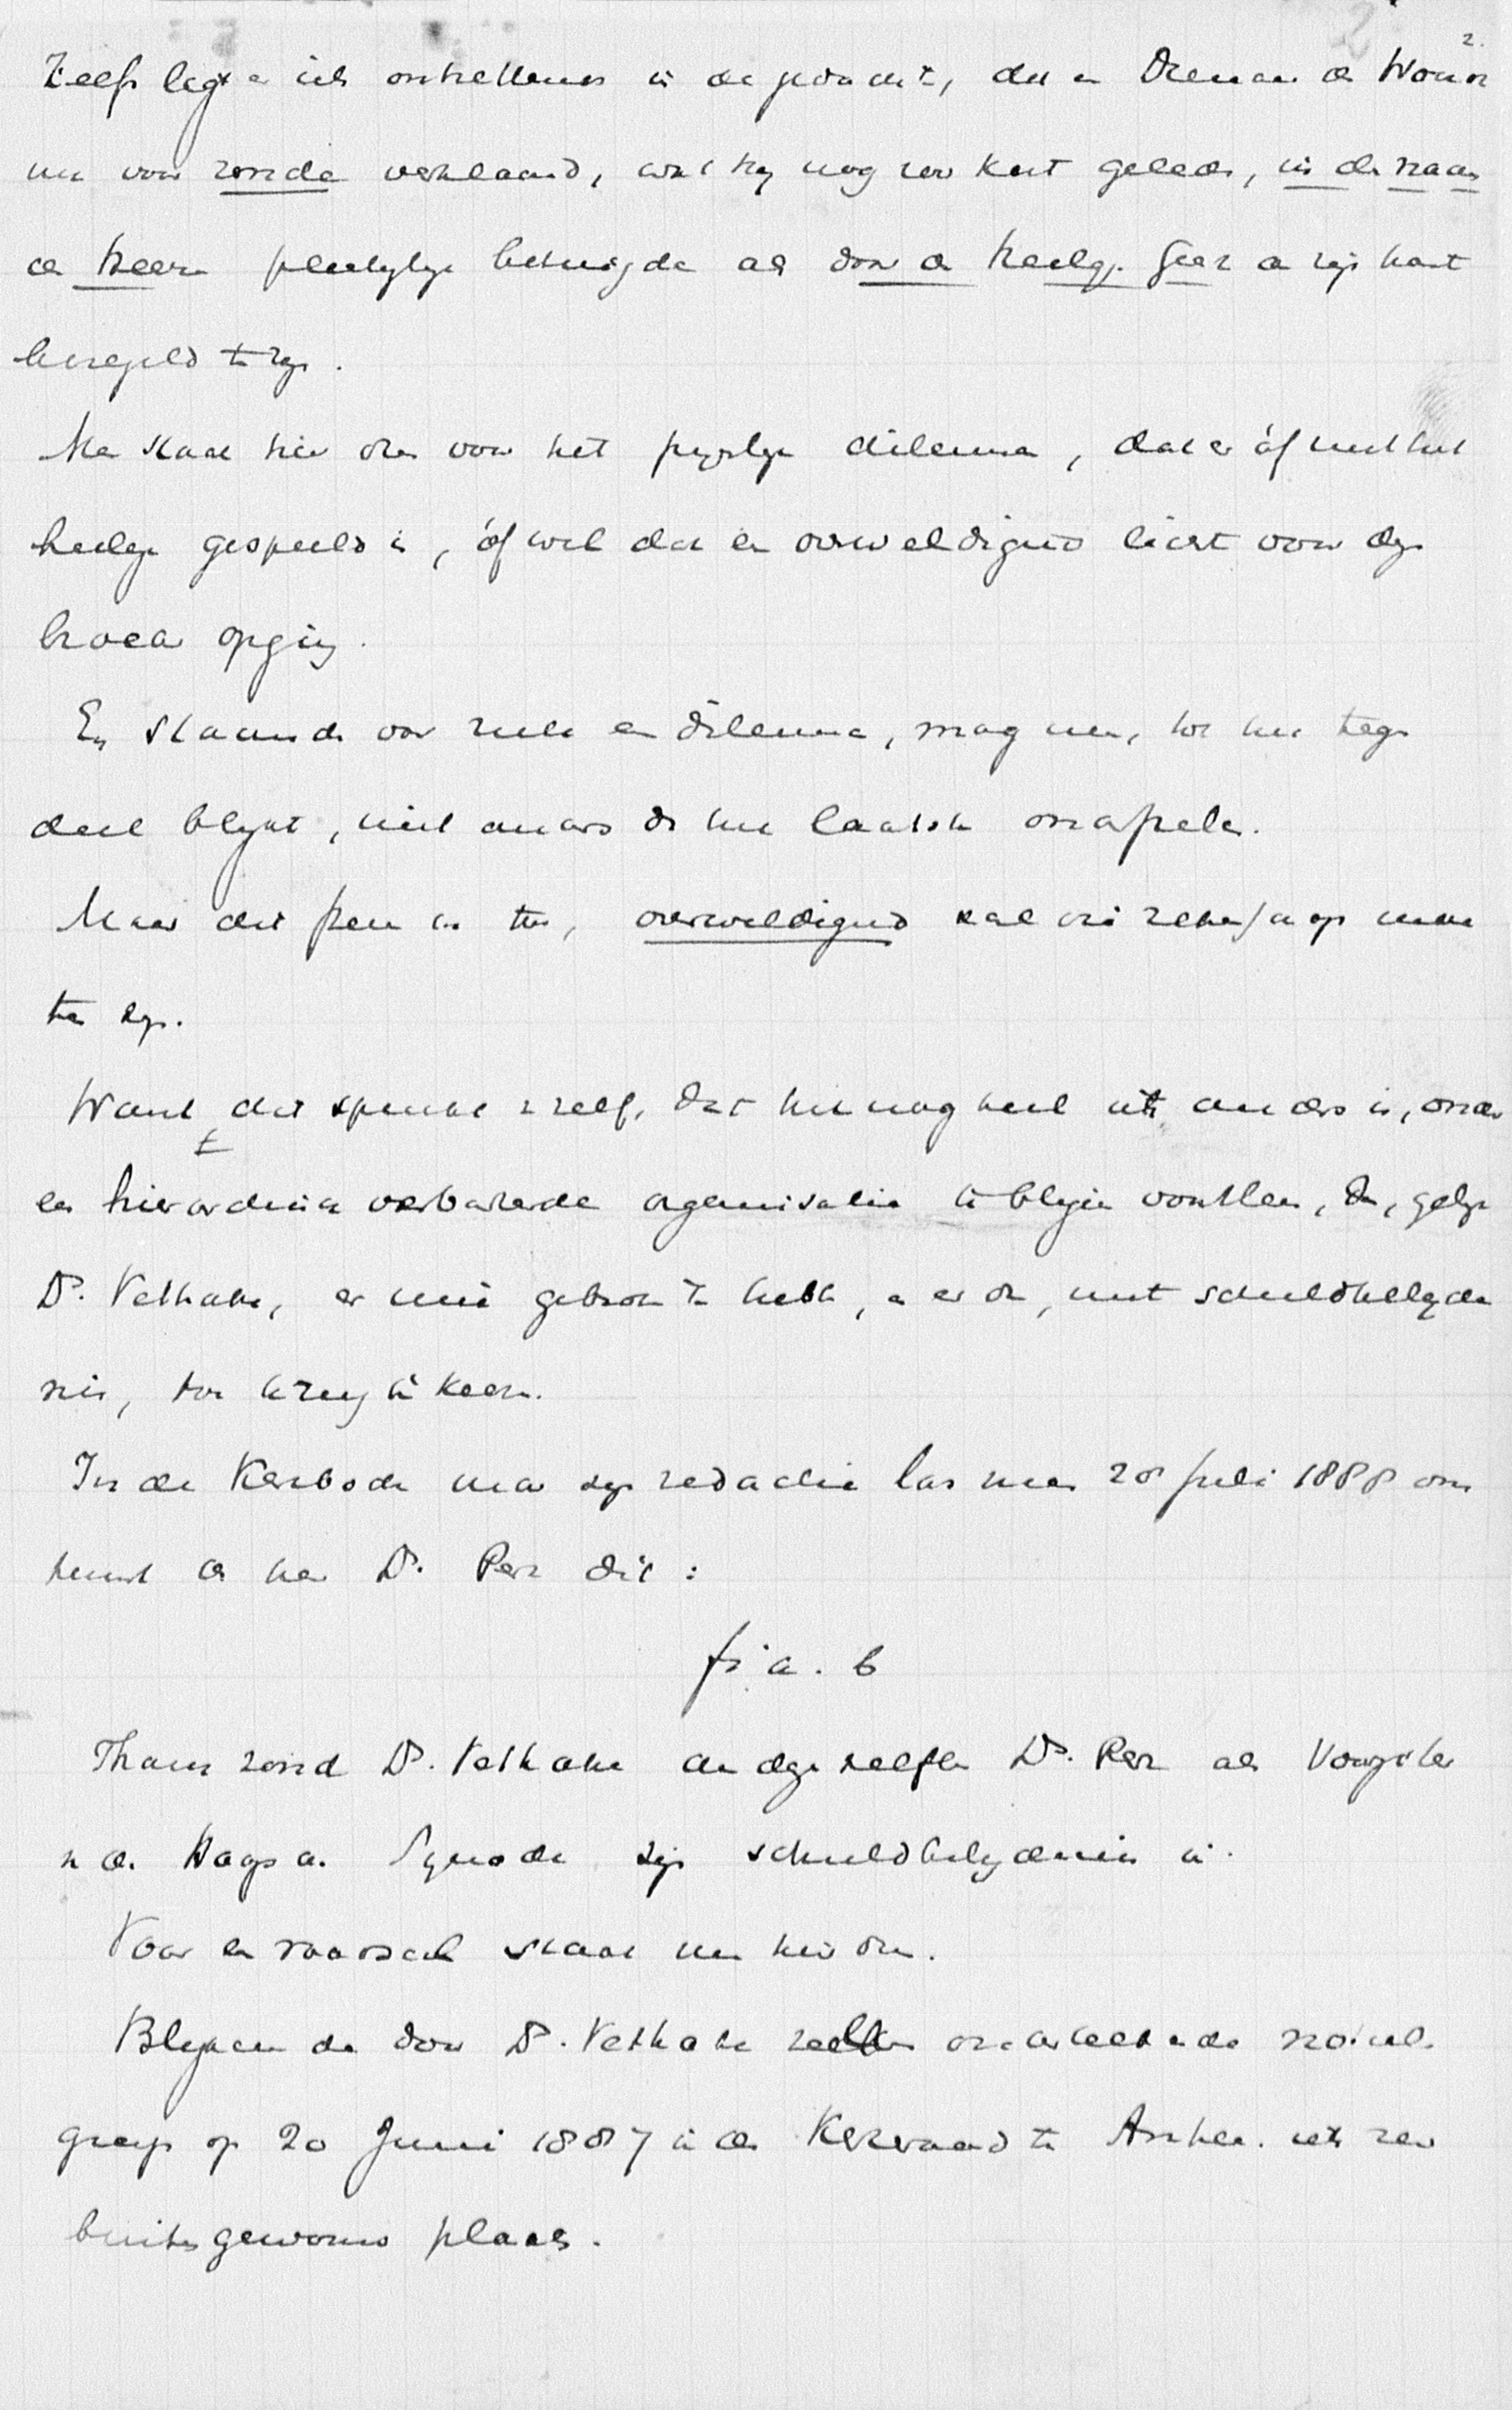 2.
Zelfs ligt er iets ontzettends in de gedachte, dat een Dienaar des Woords
nu voor zonde verklaard, wat hij nog zoo kort geleden, in den naam
des Heeren plechtiglijk betuigde als door den Heiligen Geest aan zijn hart
bezegeld te zijn.
Men staat hier dan voor het pijnlijk dilemma, dat er óf met het
heilige gespeeld is, óf wel dat een overweldigend licht voor dezen
broeder opging.
En staande voor zulk een dilemma, mag men, tot het tegen
deel blijkt, niet anders dan het laatste onderstellen.
Maar dat dient er toe, overweldigend zal dit
te zijn.
Want dit spreekt vanzelf, dat het nog heel iets anders is, onder
een hierarchisch verbasterde organisatie te blijven voortleven, dan, gelijk
Ds. Vethake, er mee gebroken te hebben, en er dan, met schuldbelijde
nis, toe terug te keeren.
In de Kerkbode onder zijn redactie las men 28 Juli 1888 om
trent den heer Ds. Perk dit:
fi a. 6
Thans zond Ds. Vethake aan dezen zelfden Ds. Perk als Voorzitter
van de Haagsche Synode zijn schuldbelijdenis in.
Voor een raadsel staat men hier dan.
Blijkens de door Ds. Vethake zelven onderteekende notulen
greep op 20 Juni 1887 in den Kerkeraad te Arnhem iets zeer
buitengewoons plaats.